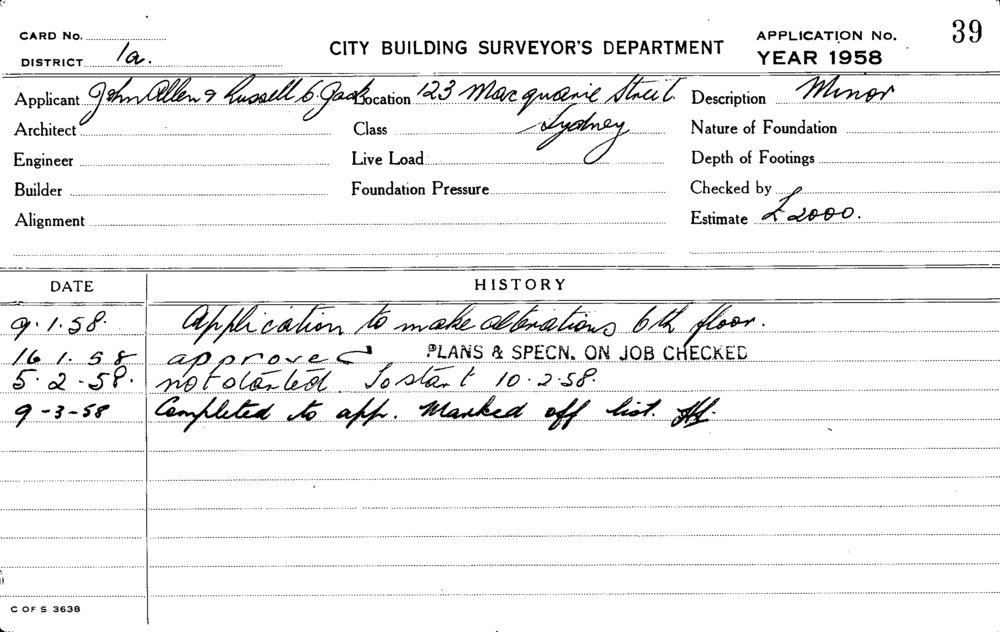 CARD No.
DISTRICT 1a.
CITY BUILDING SURVEYOR'S DEPARTMENT
APPLICATION No. 39
YEAR 1958
Applicant John Allen & Russell C. Jack Location 123 Macquarie Street Description Minor
Architect Class Sydney Nature of Foundation
Engineer Live Load Depth of Footings
Builder Foundation Pressure Checked by
Alignment Estimate £2000.
DATE HISTORY
9.1.58. Application to make alterations 6th floor.
16 1. 58 approved PLANS & SPECN. ON JOB CHECKED
5.2.58. not started. To start 10.2.58.
9-3-58 Completed to app. Marked off list.
C OF S 3638